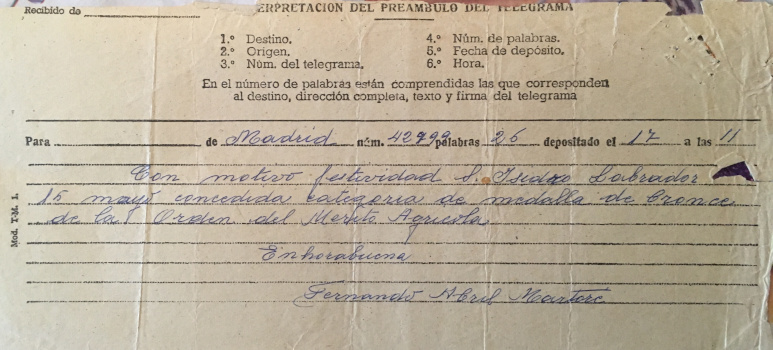 Recibido de
ERPRETACIÓN DEL PREÁMBULO DEL TELEGRAMA
1.º Destino.
2.º Origen.
3.º Núm. del telegrama.
4.º Núm. de palabras.
5.º Fecha de depósito.
6.º Hora.
En el número de palabras están comprendidas las que corresponden
al destino, dirección completa, texto y firma del telegrama
Para de Madrid núm. 42999 palabras 26 depositado el 17 a las 11
Con motivo festividad S. Isidro Labrador
15 mayo concedida categoria de medalla de Bronce
de la Orden del Merito Agricola
Enhorabuena
Fernando Abril Martorc
Mod. T-M. 1.